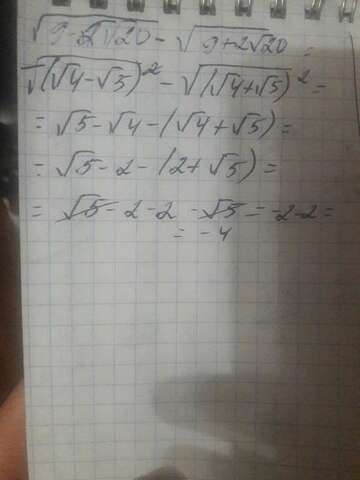 √(9-2√20) - √(9+2√20) =
√(√4-√5)² - √(√4+√5)² =
= √5-√4-(√4+√5) =
= √5-2-(2+√5) =
= √5-2-2-√5 = -2-2 =
= -4